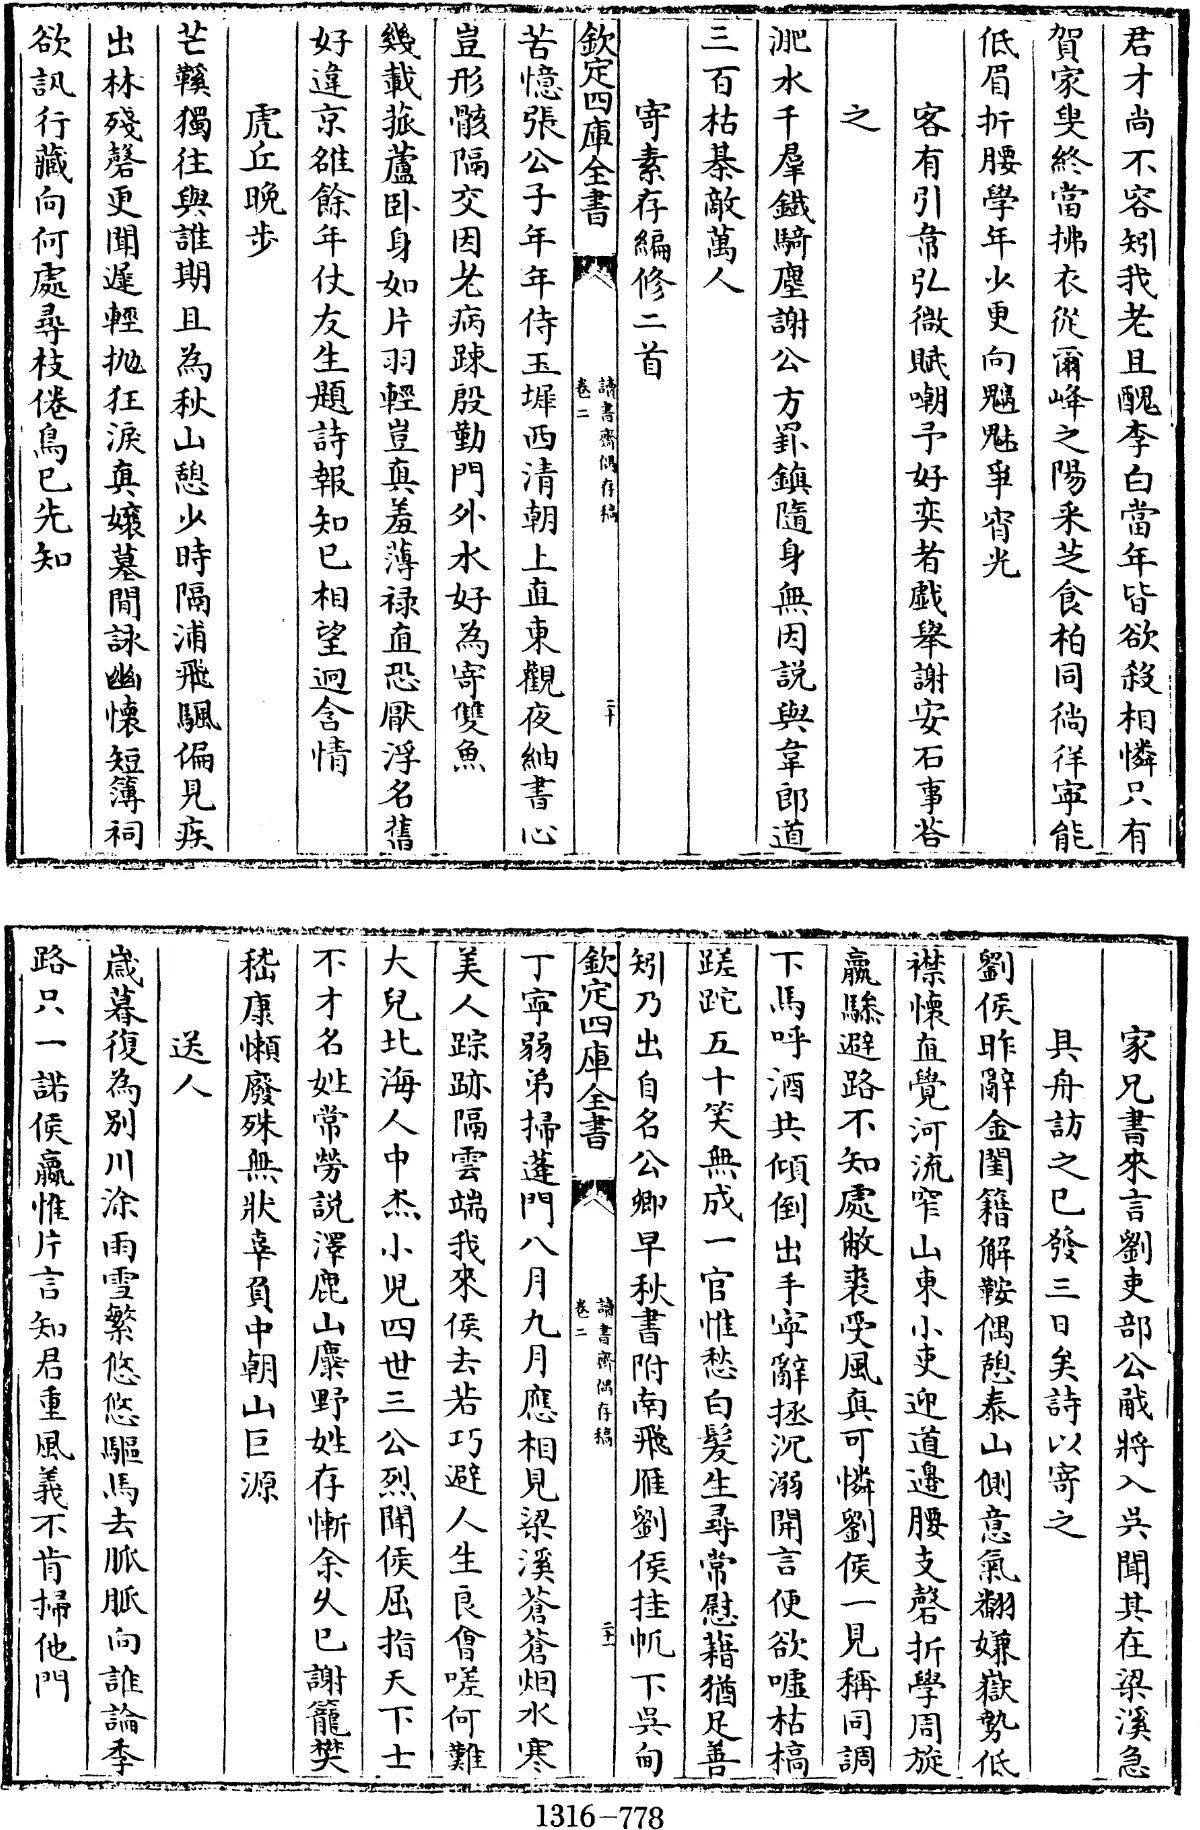 君才尚不容矧我老且醜李白當年皆欲殺相憐只有
賀家叟終當拂衣從爾峰之陽采芝食柏同徜徉寧能
低眉折腰學年少更向魑魅爭宵光
客有引韋弘微賦嘲予好奕者戲舉謝安石事答
之
淝水千羣鐵騎塵謝公方罫鎮隨身無因説與韋郎道
三百枯棊敵萬人
寄素存編修二首
欽定四庫全書
讀書齋偶存稿
卷二
二十
苦憶張公子年年侍玉墀西清朝上直東觀夜紬書心
豈形骸隔交因老病踈殷勤門外水好為寄雙魚
幾載菰蘆卧身如片羽輕豈真羞薄禄直恐厭浮名舊
好違京雒餘年仗友生題詩報知已相望迥含情
虎丘晚步
芒鞵獨往與誰期且為秋山憩少時隔浦飛颿偏見疾
出林殘磬更聞遲輕抛狂淚真孃墓閒詠幽懷短簿祠
欲訊行藏向何處尋枝倦鳥已先知
家兄書來言劉吏部公㦷將入吳聞其在梁溪急
具舟訪之已發三日矣詩以寄之
劉侯昨辭金閨籍解鞍偶憩泰山側意氣翻嫌嶽勢低
襟懷直覺河流窄山東小吏迎道邊腰支磬折學周旋
羸驂避路不知處敝裘受風真可憐劉侯一見稱同調
下馬呼酒共傾倒出手寧辭拯沉溺開言便欲噓枯槁
蹉跎五十笑無成一官惟愁白髮生尋常慰藉猶足善
矧乃出自名公卿早秋書附南飛雁劉侯挂帆下吳甸
欽定四庫全書
讀書齋偶存稿
卷二
二十一
丁寧弱弟掃蓬門八月九月應相見梁溪蒼蒼烟水寒
美人踪跡隔雲端我來侯去若巧避人生良會嗟何難
大兒北海人中杰小兒四世三公烈聞侯屈指天下士
不才名姓常勞説澤鹿山麋野姓存慚余久已謝籠樊
嵇康懶廢殊無狀辜負中朝山巨源
送人
歲暮復為別川涂雨雪繁悠悠驅馬去脈脈向誰論季
路只一諾侯嬴惟片言知君重風義不肯掃他門
1316-778